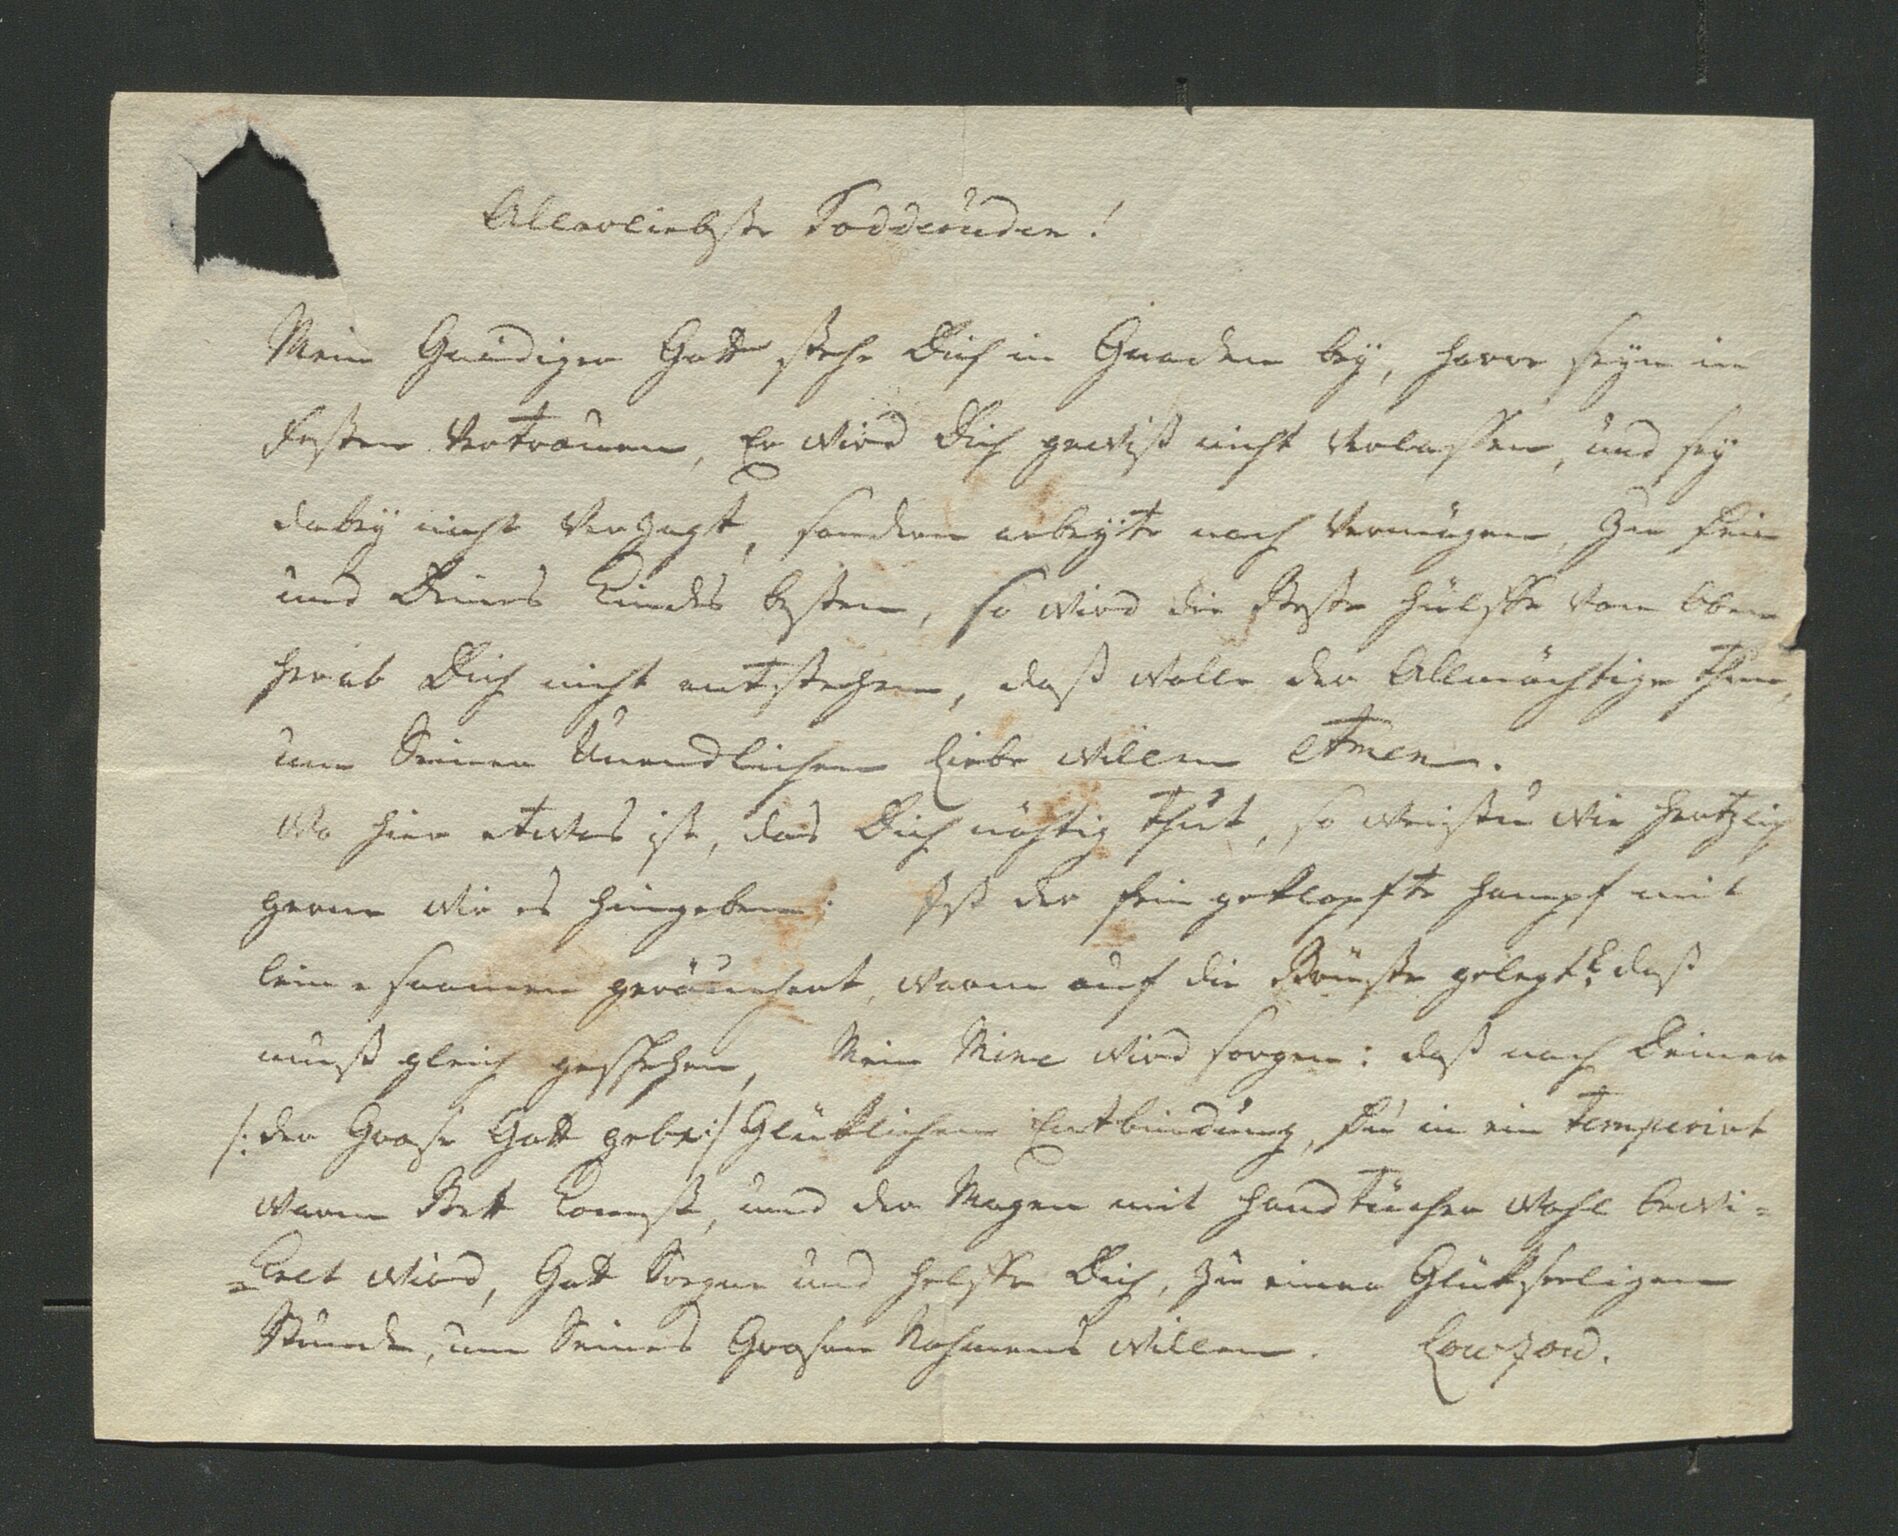 Allerliebste Fodderuden!
Mein Gnädiger Gott stehe Dich in Gnaden bey, harre seyn in
festen Vertrauen, Er wird Dich gewiß nicht verlassen, und sey
dabey nicht verzagt, sondern arbeyte nach Vermögen, zu Dein
und Deines Kindes besten, so wird die Beste Hülffe von oben
herab Dich nicht entstehen, daß wolle der Allmächtige thun,
um Seiner Unendlichen Liebe willen Amen.
Wo hier etwas ist, das Dich nöhtig thut, so weistu wie hertzlich
gerne wir es hingeben: Ist der fein geklopfte Hampf mit
lein-saamen geräuchert, warm auf die Brüste gelegt? daß
muß gleich geschehen, Mein Mine wird sorgen: daß nach Deiner
/: der Große Gott gebe :/ Glüklichen Entbindung, Du in ein temperirt
warm Bett komst, und der Magen mit Handtücher wohl bewi-
-kelt wird, Gott Seegne und helffe Dich, zu einer Glükseeligen
Stunde, um Seines Großen Nahmens willen. Lowzow.